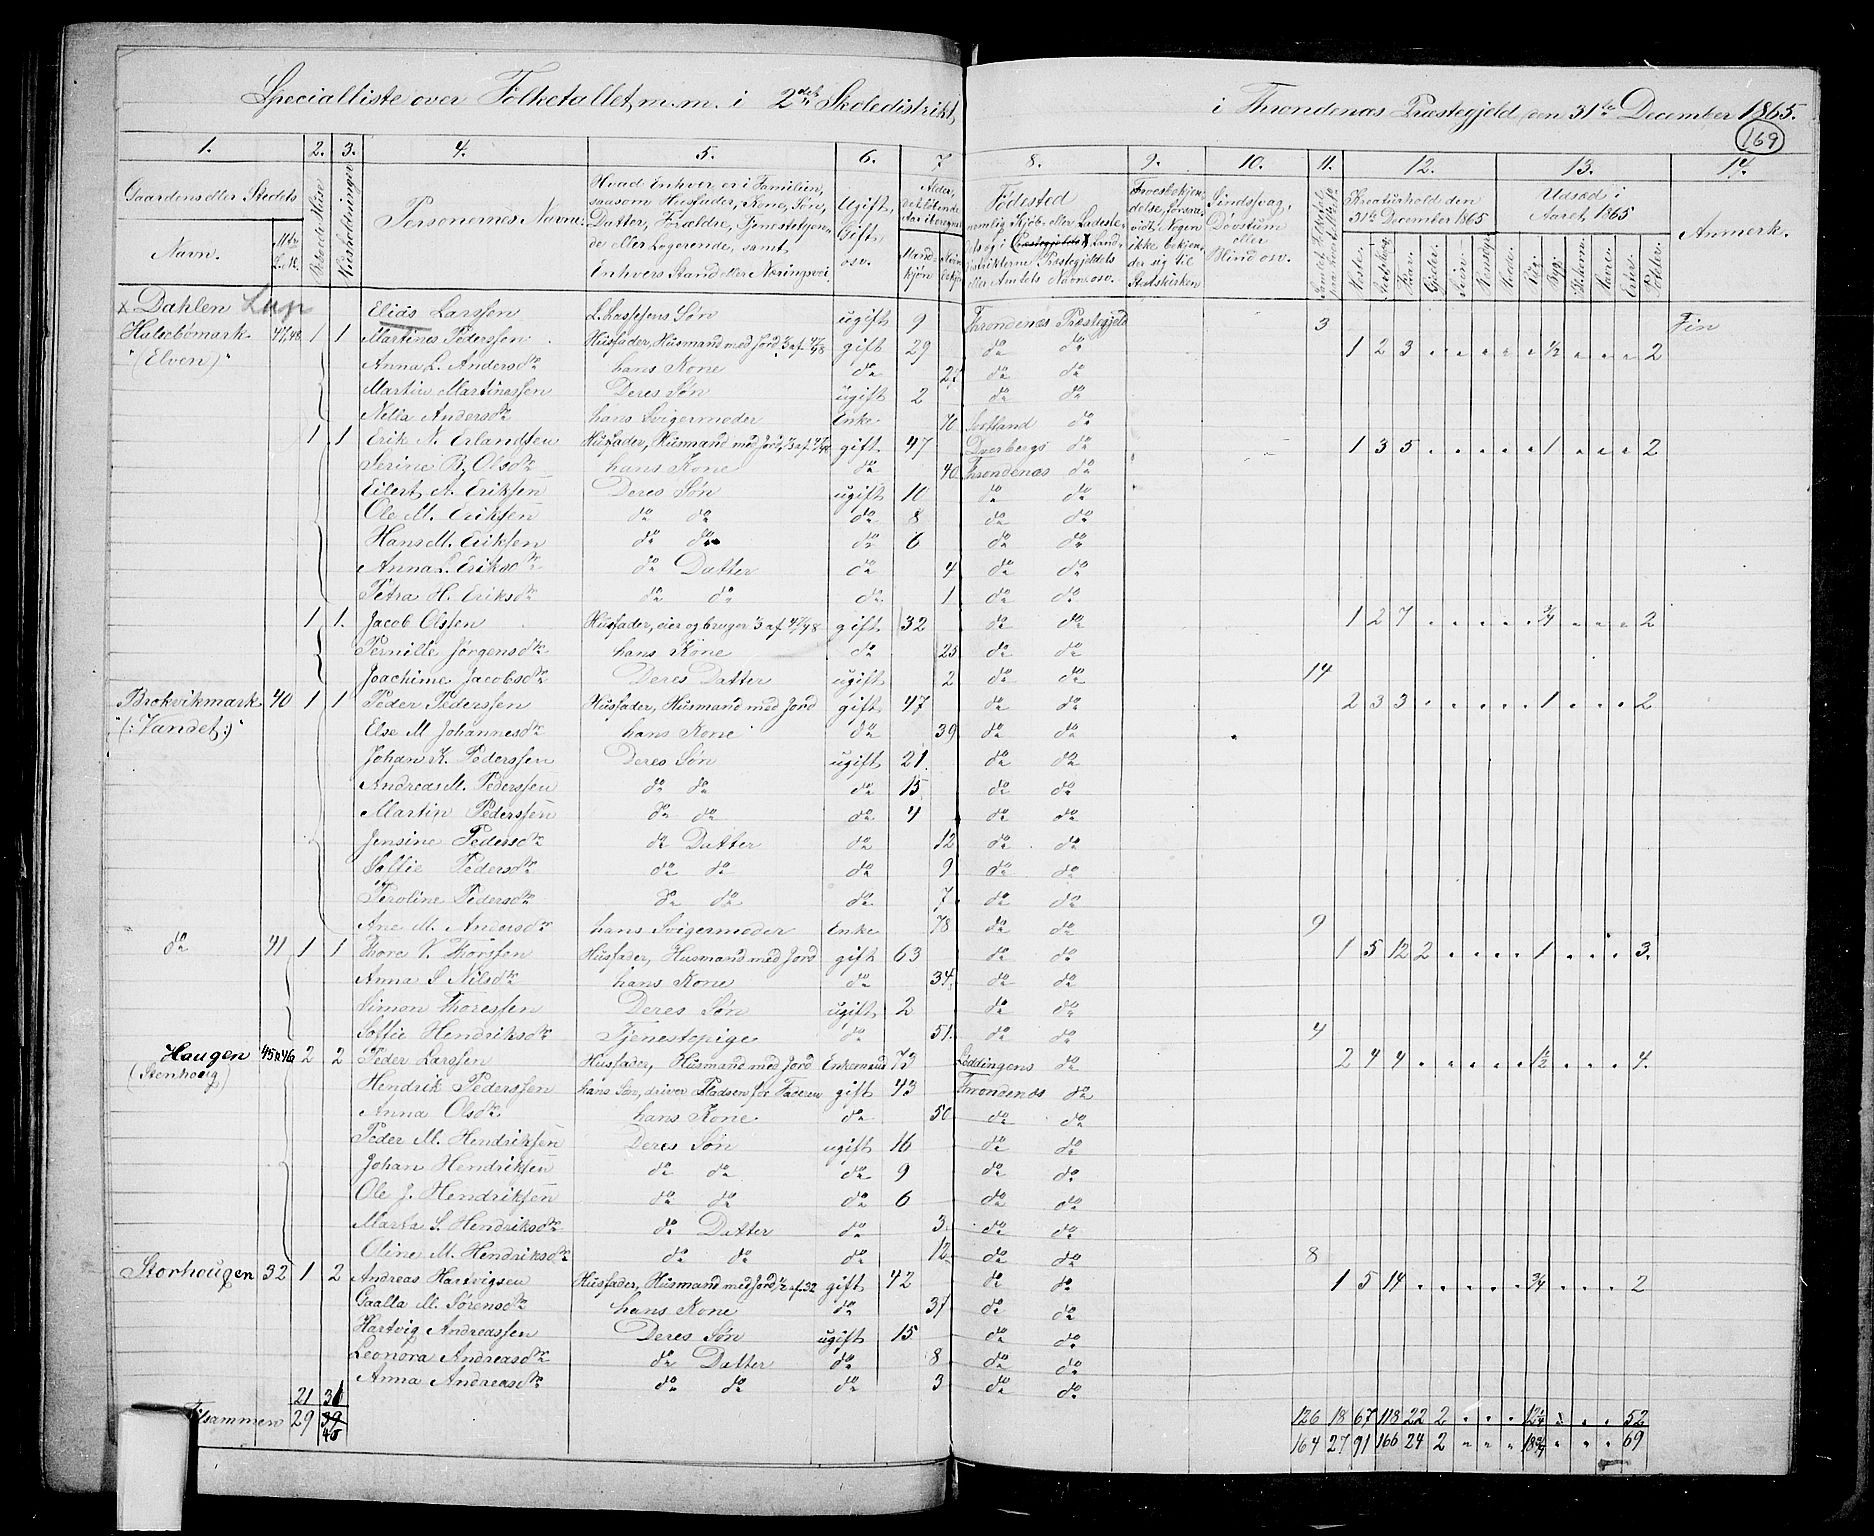 Specialliste over Folketallet m.m. i 2det Skoledistrikt i Throndenæs Præstegjeld den 31te December 1865.
169
1. 2. 3. 4. 5. 6. 7 8. 9. 10. 11. 12. 13. 14.
Gaardens eller Stedets
Navn. Mtr. L.N.
Beboede Huse
Huusholdninger
Personernes Navne
Hvad Enhver er i Familien,
saasom Husfader, Kone, Søn,
Datter, Forældre, Tjenestetyen-
de eller Logerende, samt
Enhvers Stand eller Næringsvei
Ugift, Gift osv.
Alder, det løbende Aar iberegnet
Mand-kjøn Kvindekjøn
Fødested
nemlig Kjøb- eller Ladeste-
Sindssvag, Døvstum eller Blind osv.
Kreaturhold den 31te December 1865
Heste Faar Gjeder Sviin Rensdyr
Udsæd i Aaret 1865
Hvede Rug Byg Havre Erter Poteter
Anmerk.
x Dahlen Lap Elias Larssen L. Lassesens Søn ugift 9 Throndenæs Præstegjeld 3 Fin
Halsebømark 47,48 1 1 Martines Pederssen Husfader, Husmand med Jord, 3 af 47/48 gift 29 do do 1 2 3 ½ 2
"(Elven)" Anna L. Andersdtr hans Kone do do do
Martin Martinessen Deres Søn ugift 2 do do
Nella Andersdtr hans Svigermoder Enke 70 Sortland do
1 1 Erik N. Erlandsen Husfader, Husmand med Jord, 3 af 47/48 gift 47 Dverbergs do 1 3 5 1 2
Serine B. Olsdtr hans Kone do 40 Throndenæs do
Eilert A. Eriksen Deres Søn ugift 10 do do
Ole M. Eriksen do do do 8 do do
Hans M. Eriksen do do do 6 do do
Anna L. Eriksdtr do Datter do 4 do do
Petra H. Eriksdtr do do do 1 do do
1 1. Jacob Olssen Husfader, eier og bruger 3 af 47/48 gift 32 do do 1 2 7 ¾ 2
Pernille Jørgensdtr hans Kone do 25 do do
Joachime Jacobsdtr Deres Datter ugift 2 do do 14
Brokvikmark 40 1 1 Peder Pederssen Husfader, Husmand med Jord gift 47 do do 2 3 3 1 2
"(:Vandet:)" Else M Johannesdtr hans Kone do 39 do do
Johan K. Pederssen Deres Søn ugift 21. do do
Andreas M. Pederssen do do do 15 do do
Martin Pederssen do do do 4 do do
Jensine Pedersdtr do Datter do 12 do do
Soffie Pedersdtr do do do 9 do do
Peroline Pedersdtr do do do 7 do do
Ane M. Andersdtr hans Svigermoder Enke 78 do do 9
do 41 1 1 Thore V. Thorssen Husfader, Husmand med Jord gift 63 do do 1 5 12 2 1 3.
Anna S Nilsdtr hans Kone do 34 do do
Simon Thoressen Deres Søn ugift 2 do do
Soffie Hendriksdtr Tjenestepige do 51. do do 4
Haugen 2 2 Peder Larssen Husfader, Husmand med Jord Enkemand 72 Loddingens do 2 4 4 1½ 4.
(Stenhoug) Hendrik Pederssen hans Søn, driver Pladsen for Faderen gift 43 Throndenæs do
Anna Olsdtr hans Kone do 50 do do
Peder M. Hendriksen Deres Søn ugift 16 do do
Johan Hendriksen do do do 9 do do
Ole J. Hendriksen do do do 6 do do
Marta S. Hendriksdtr do Datter do 3 do do
Oline M. Hendriksdtr do do do 12 do do 8
Storhougen 32 1 2 Andreas Hartvigsen Husfader, Husmand med Jord ½ af 32 gift 42 do do 1 5 14 ¾ 2
Gaalla M. Sørensdtr hans Kone do 37 do do
Hartvig Andreassen Deres Søn ugift 15 do do
Leonora Andreasdtr do Datter do 8 do do
Anna Andreasdtr do do do 3 do do
21 126 18 67 118 22 2 12¼ 52
Tilsammen 29 39 164 27 91 166 24 2 18¾ 69